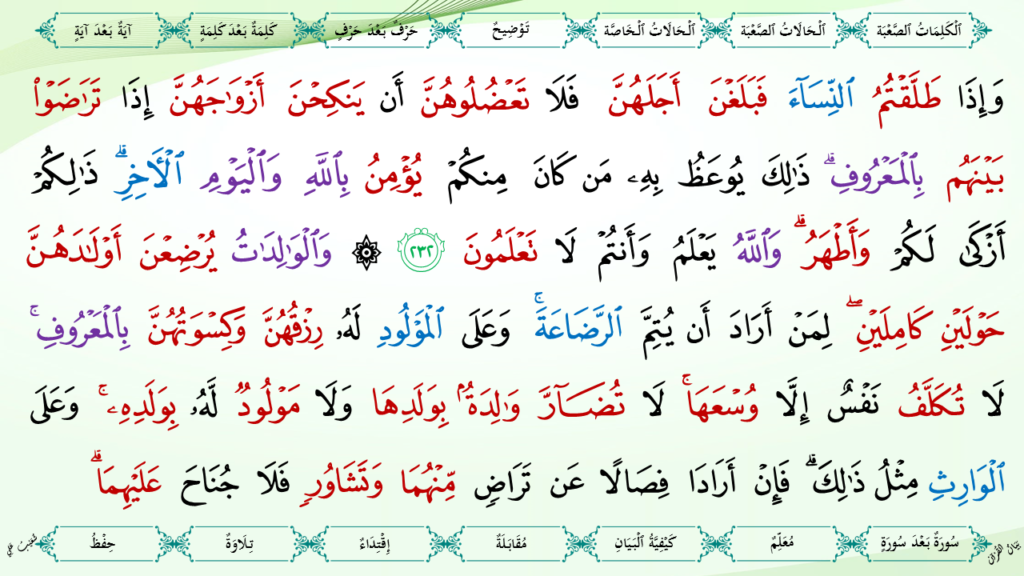 اَلْكَلِمَاتُ الصَّعْبَة اَلْحَالَاتُ الصَّعْبَة اَلْحَالَاتُ الْخَاصَّة تَوْضِيحٌ حَرْفٌ بَعْدَ حَرْفٍ كَلِمَةٌ بَعْدَ كَلِمَةٍ آيَةٌ بَعْدَ آيَةٍ
وَإِذَا طَلَّقْتُمُ ٱلنِّسَآءَ فَبَلَغْنَ أَجَلَهُنَّ فَلَا تَعْضُلُوهُنَّ أَن يَنكِحْنَ أَزْوَٰجَهُنَّ إِذَا تَرَٰضَوْا۟
بَيْنَهُم بِٱلْمَعْرُوفِ ۗ ذَٰلِكَ يُوعَظُ بِهِۦ مَن كَانَ مِنكُمْ يُؤْمِنُ بِٱللَّهِ وَٱلْيَوْمِ ٱلْـَٔاخِرِ ۗ ذَٰلِكُمْ
أَزْكَىٰ لَكُمْ وَأَطْهَرُ ۗ وَٱللَّهُ يَعْلَمُ وَأَنتُمْ لَا تَعْلَمُونَ ٢٣٢ ۞ وَٱلْوَٰلِدَٰتُ يُرْضِعْنَ أَوْلَـٰدَهُنَّ
حَوْلَيْنِ كَامِلَيْنِ ۖ لِمَنْ أَرَادَ أَن يُتِمَّ ٱلرَّضَاعَةَ ۚ وَعَلَى ٱلْمَوْلُودِ لَهُۥ رِزْقُهُنَّ وَكِسْوَتُهُنَّ بِٱلْمَعْرُوفِ ۚ
لَا تُكَلَّفُ نَفْسٌ إِلَّا وُسْعَهَا ۚ لَا تُضَآرَّ وَٰلِدَةٌۢ بِوَلَدِهَا وَلَا مَوْلُودٌ لَّهُۥ بِوَلَدِهِۦ ۚ وَعَلَى
ٱلْوَارِثِ مِثْلُ ذَٰلِكَ ۗ فَإِنْ أَرَادَا فِصَالًا عَن تَرَاضٍ مِّنْهُمَا وَتَشَاوُرٍ فَلَا جُنَاحَ عَلَيْهِمَا ۗ
بَيَانُ الْقُرْآنِ سُورَةٌ بَعْدَ سُورَةٍ مُعَلِّمٌ كَيْفِيَّةُ الْبَيَانِ مُقَابَلَةٌ إِقْتِدَاءٌ تِلَاوَةٌ حِفْظٌ